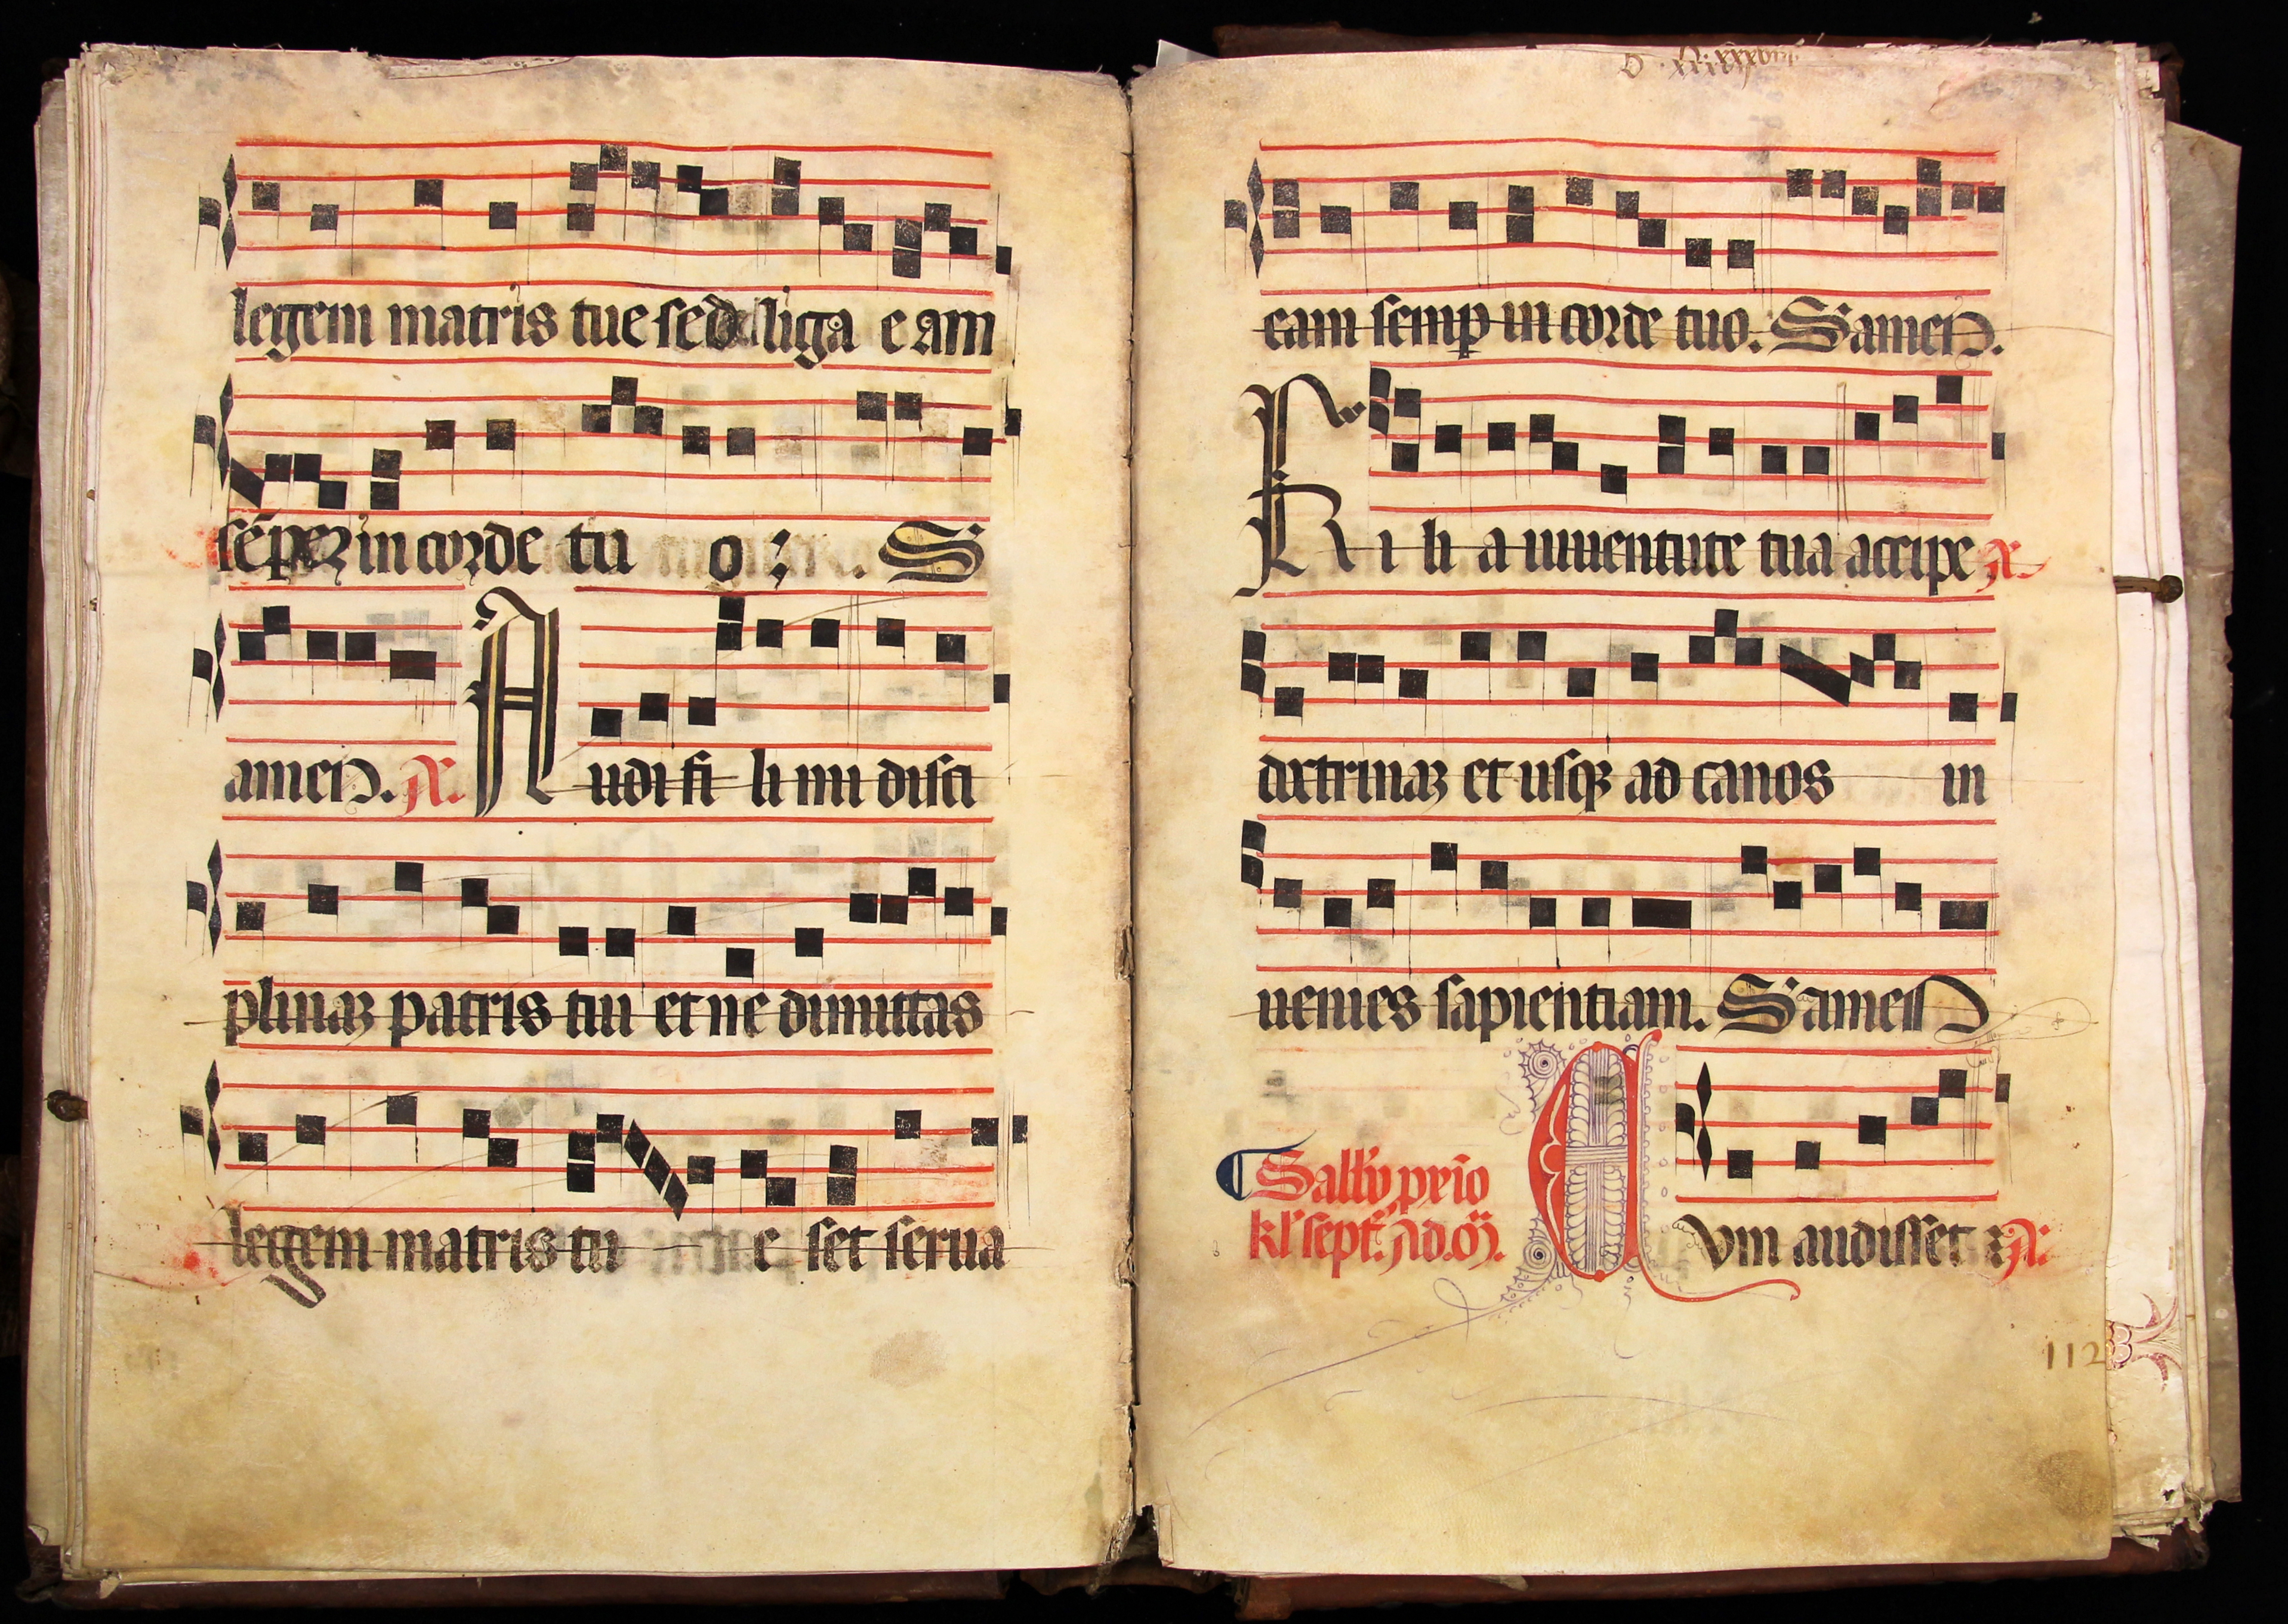 legem matris tue sed liga e am
sēper in corde tu o ; S
amen. A udi fi li mi disci
plinaꝫ patris tui et ne dimittas
legem matris tu e set serua
eam semꝑ in corde tuo. S amen.
F i li a iuuentute tua accipe
doctrinaꝫ et usqꝫ ad canos in
uenies sapientiam. S amen
Sabbo prīo
kl' sept. Ad. m̄.
C vm audisset
112